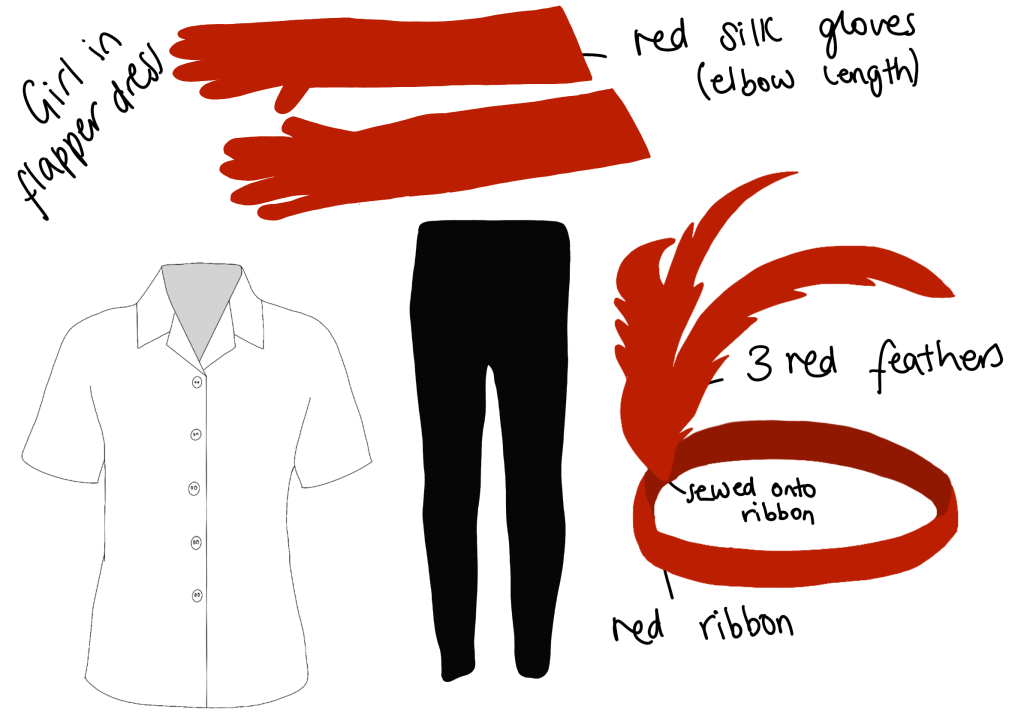 Girl in
flapper dress
red silk gloves
(elbow length)
3 red feathers
sewed onto
ribbon
red ribbon